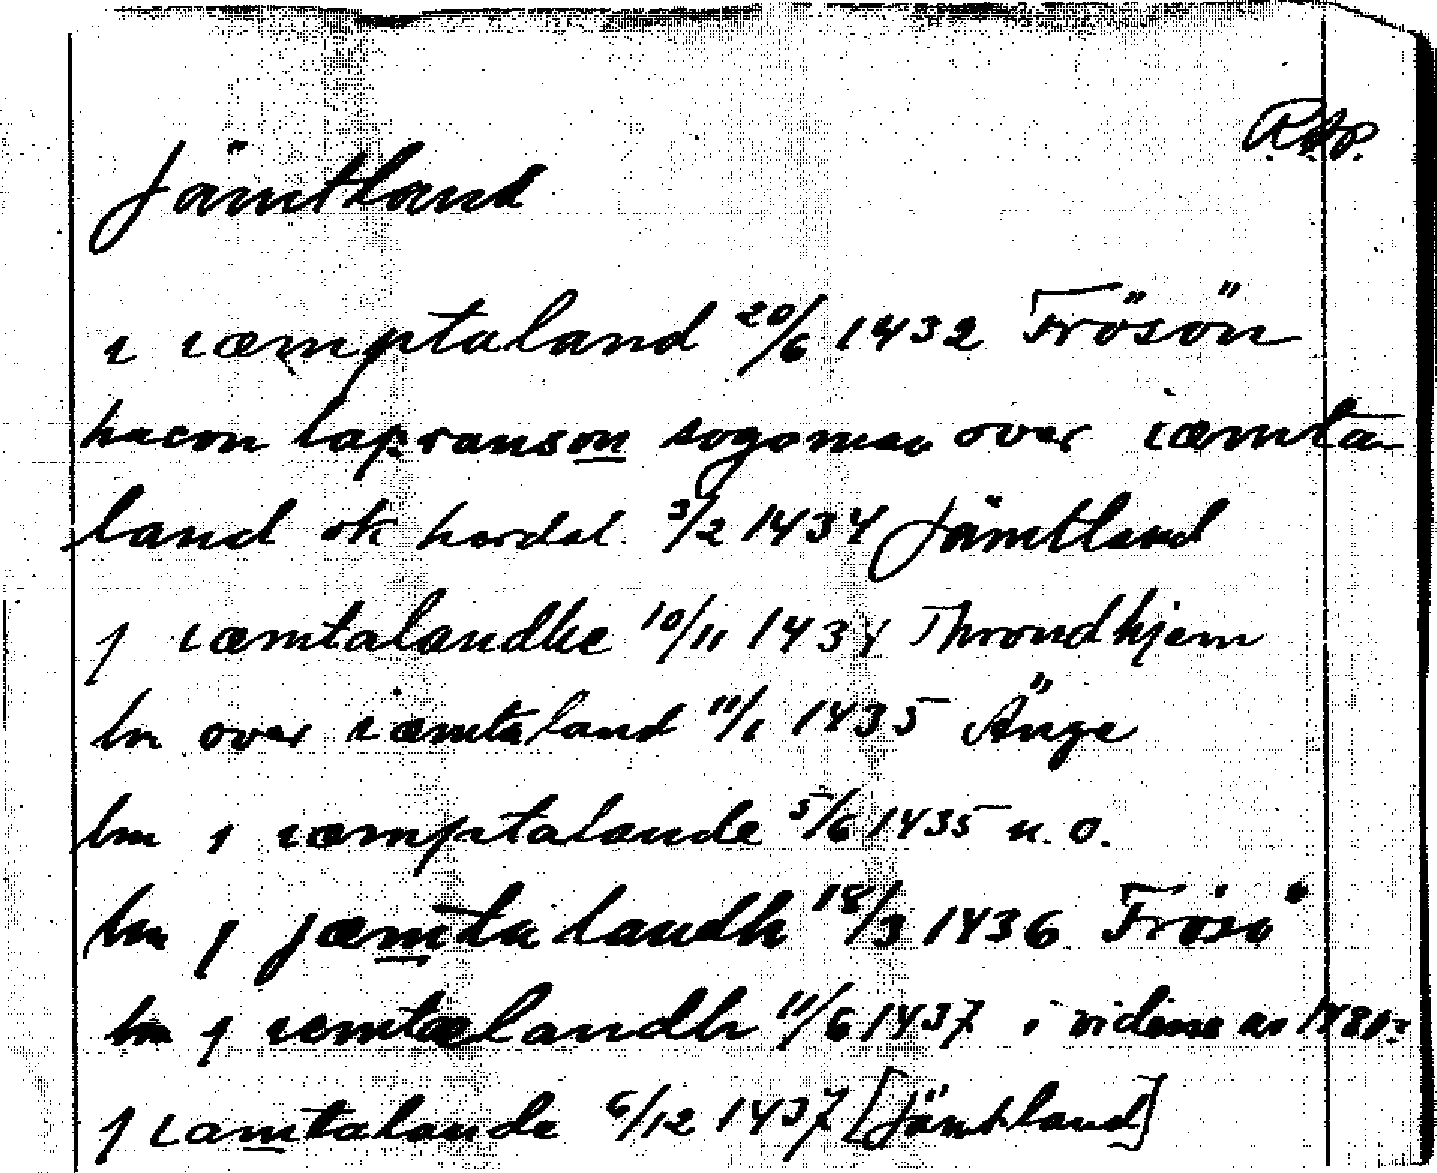 RAP.
Jämtland
i iæmptaland 20/6 1432 Frösön
hacon lafransson over iæmta-
land ok herdal. 3/2 1434 Jämtland
j iæmtalandhe 10/11 1434 Throndhjem
lm over iæmtaland 11/1 1435 Änge
lm j iæmptalande 5/6 1435 u. o.
lm j jæmtalandh 18/3 1436 Frösö
lm j iemtælandh 11/6 1437 i vidisse av
j iamtalande 6/12 1437 [Jämtland]